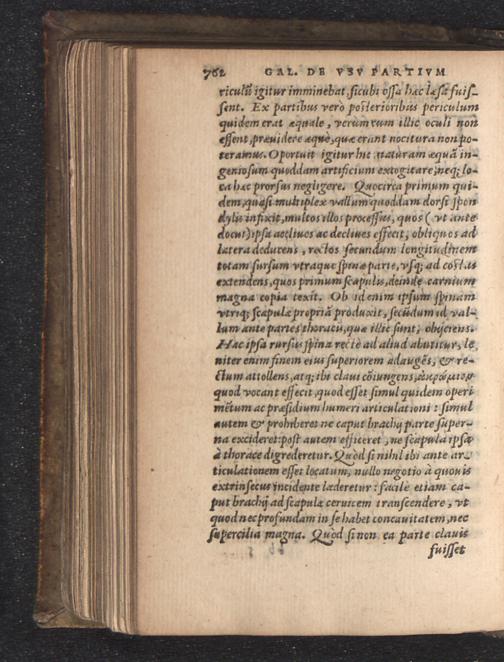 762 GAL. DE VSV PARTIVM
riculū igitur imminebat, sicubi ossa hæc læsa fuis-
sent. Ex partibus verò posterioribus periculum
quidem erat æquale, verùm cum illic oculi non
essent, præuidere æquè, quæ erant nocitura non po-
teramus. Oportuit igitur hîc naturam æquā in-
geniosum quoddam artificium excogitare, neq; lo-
ca hæc prorsus negligere. Quocirca primum qui-
dem, quasi multiplex vallum quoddam dorsi spon
dylis infixit, multos illos processus, quos (vt ante
docui) ipsa accliues ac decliues effecit, obliquos ad
latera deducens, rectos secundum longitudinem
totam sursum vtraque spinæ parte, vsq; ad costas
extendens, quos primum scapulis, deinde carnium
magna copia texit. Ob id enim ipsum spinam
vtriq; scapulæ propriā produxit, secūdum id val-
lum ante partes thoracis, quæ illic sunt, obijciens.
Hac ipsa rursus spina rectè ad aliud abutitur, le
niter enim finem eius superiorem adaugēs, & re-
ctum attollens, atq; ibi claui cōiungens, ἀκρώμιον
quod vocant effecit, quod esset simul quidem operi
mētum ac præsidium humeri articulationi: simul
autem & prohiberet ne caput brachij parte super-
na excideret: post autem efficeret, ne scapula ipsa
à thorace digrederetur. Quòd si nihil ibi ante ar-
ticulationem esset locatum, nullo negotio à quouis
extrinsecus incidente læderetur: facilè etiam ca-
put brachij ad scapulæ ceruicem transcendere, vt
quod nec profundam in se habet concauitatem, nec
supercilia magna. Quòd si non ea parte clauis
fuisset